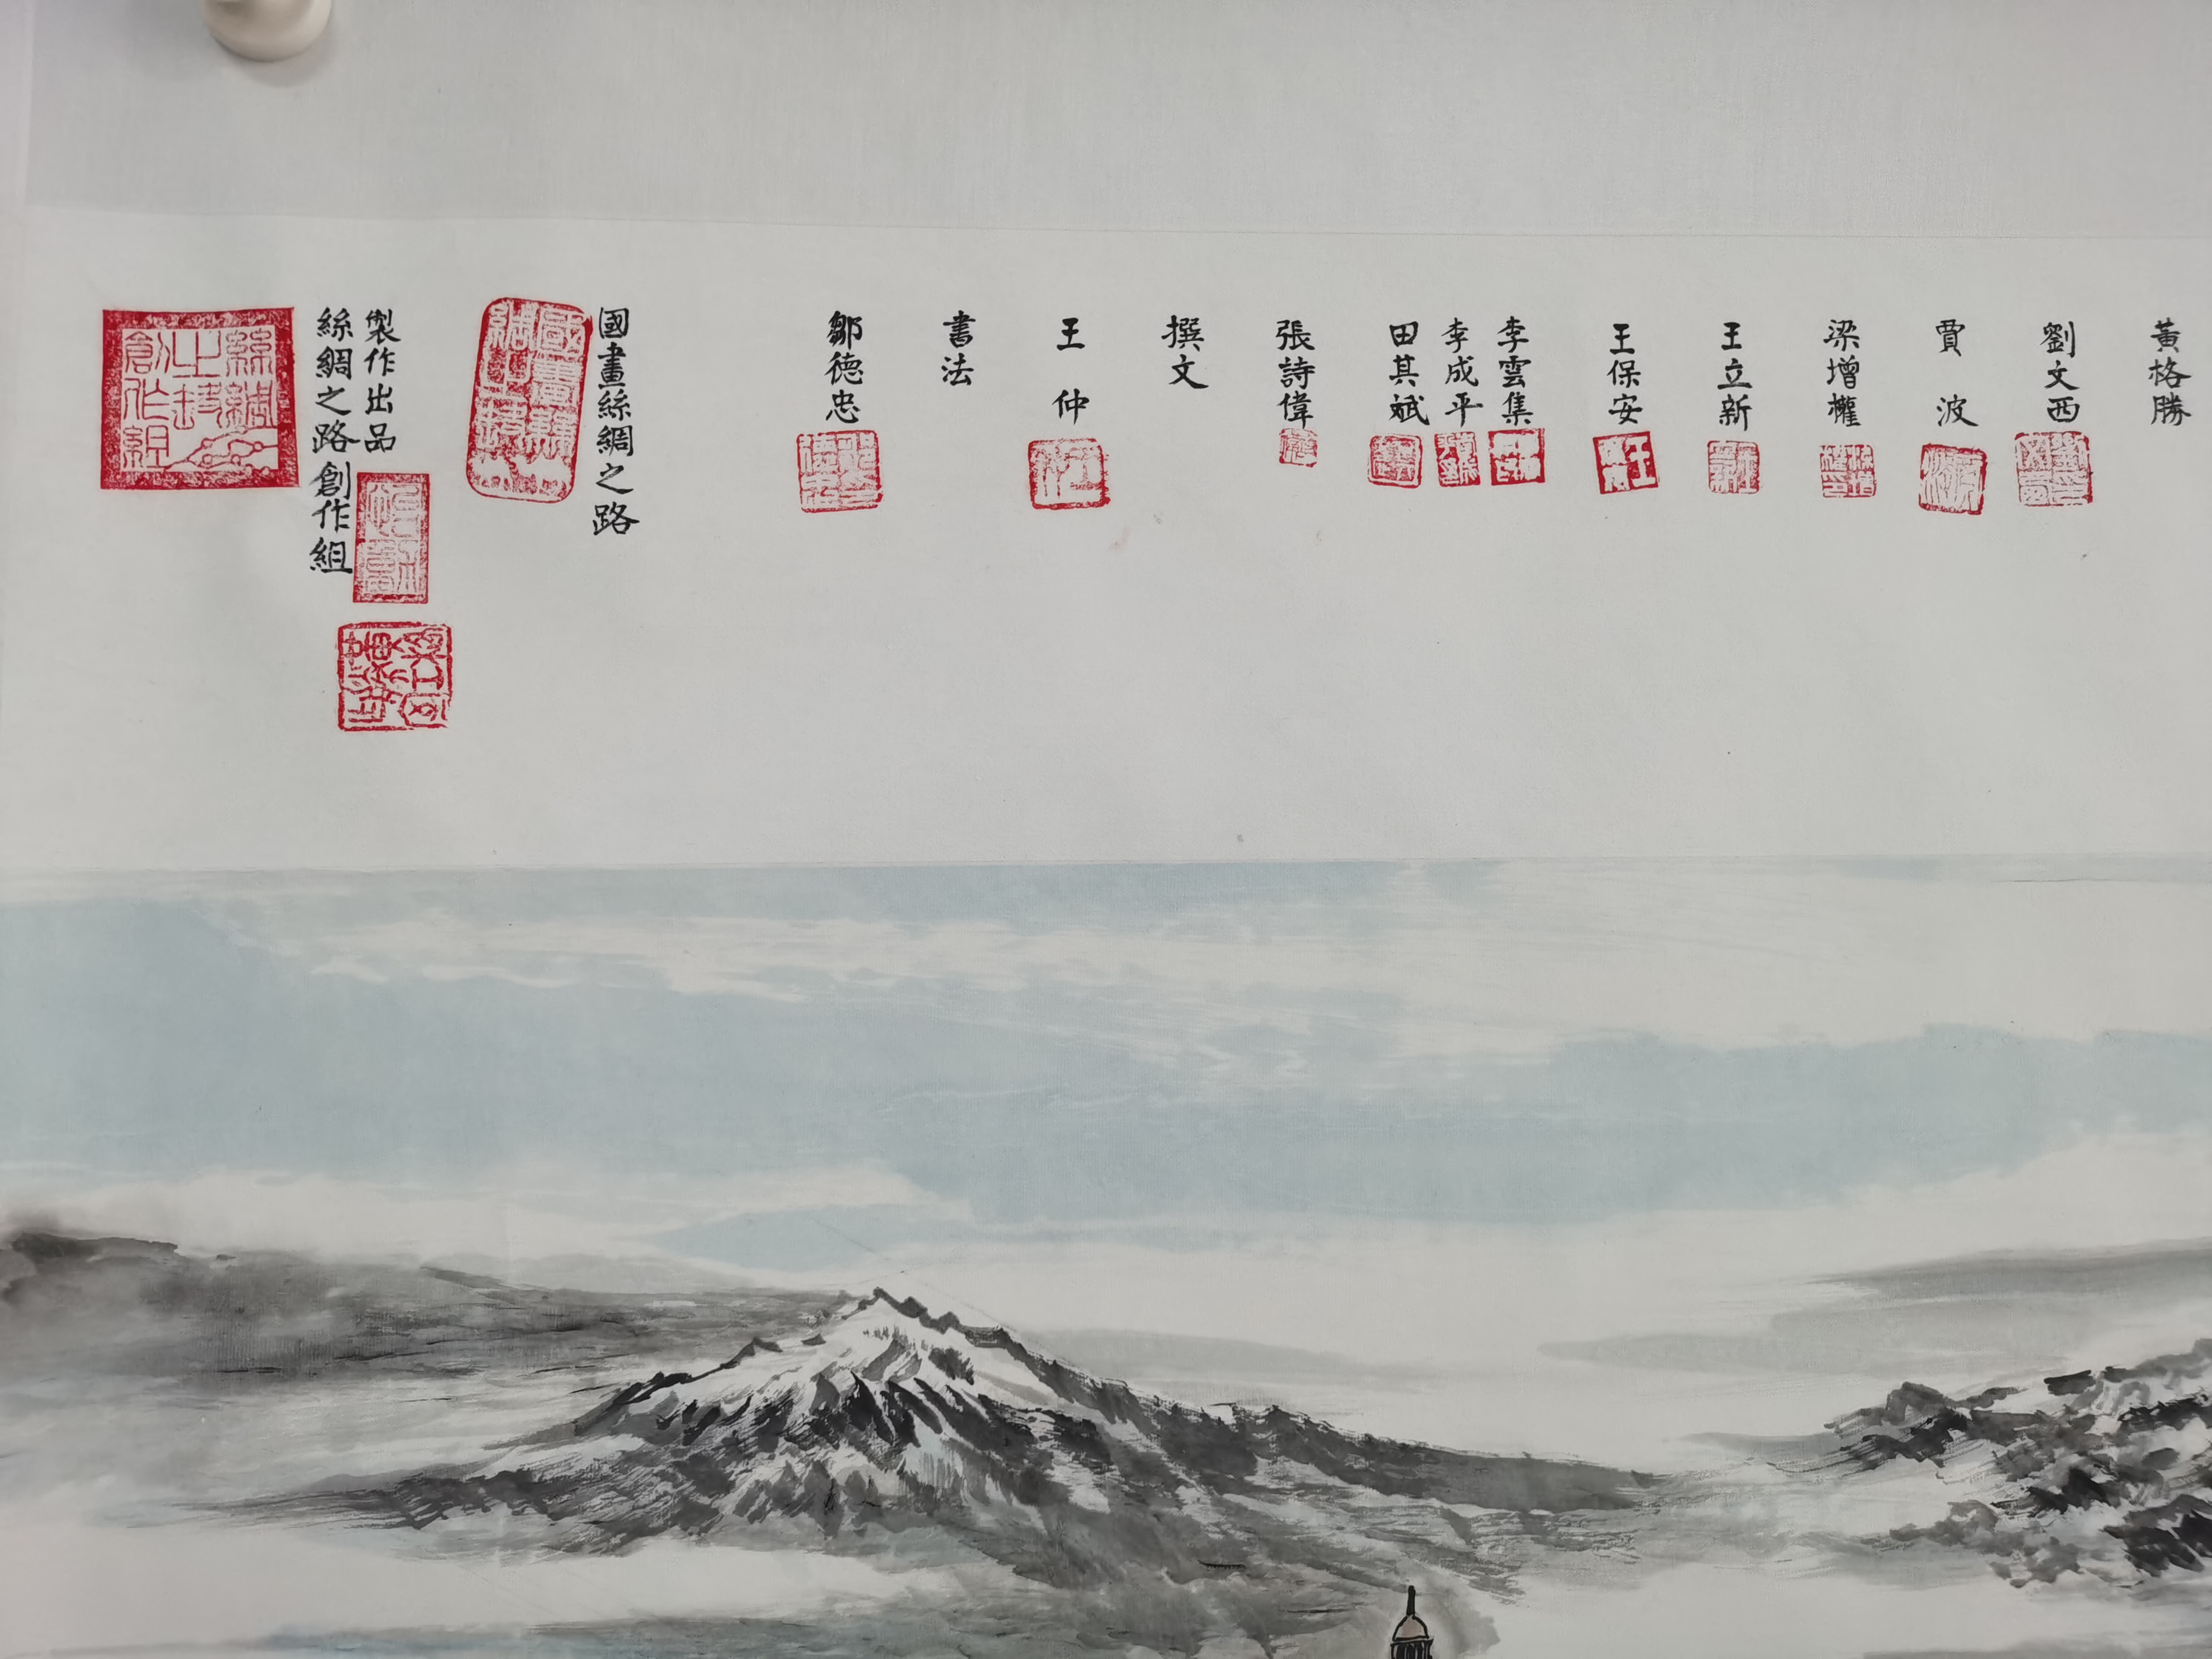 黃格勝
劉文西
賈波
梁增權
王立新
王保安
李雲集
李成平
田其斌
張詩偉
撰文
王仲
書法
鄒德忠
國畫絲綢之路
國畫絲綢之路
製作出品
絲綢之路創作組
絲綢之路創作組